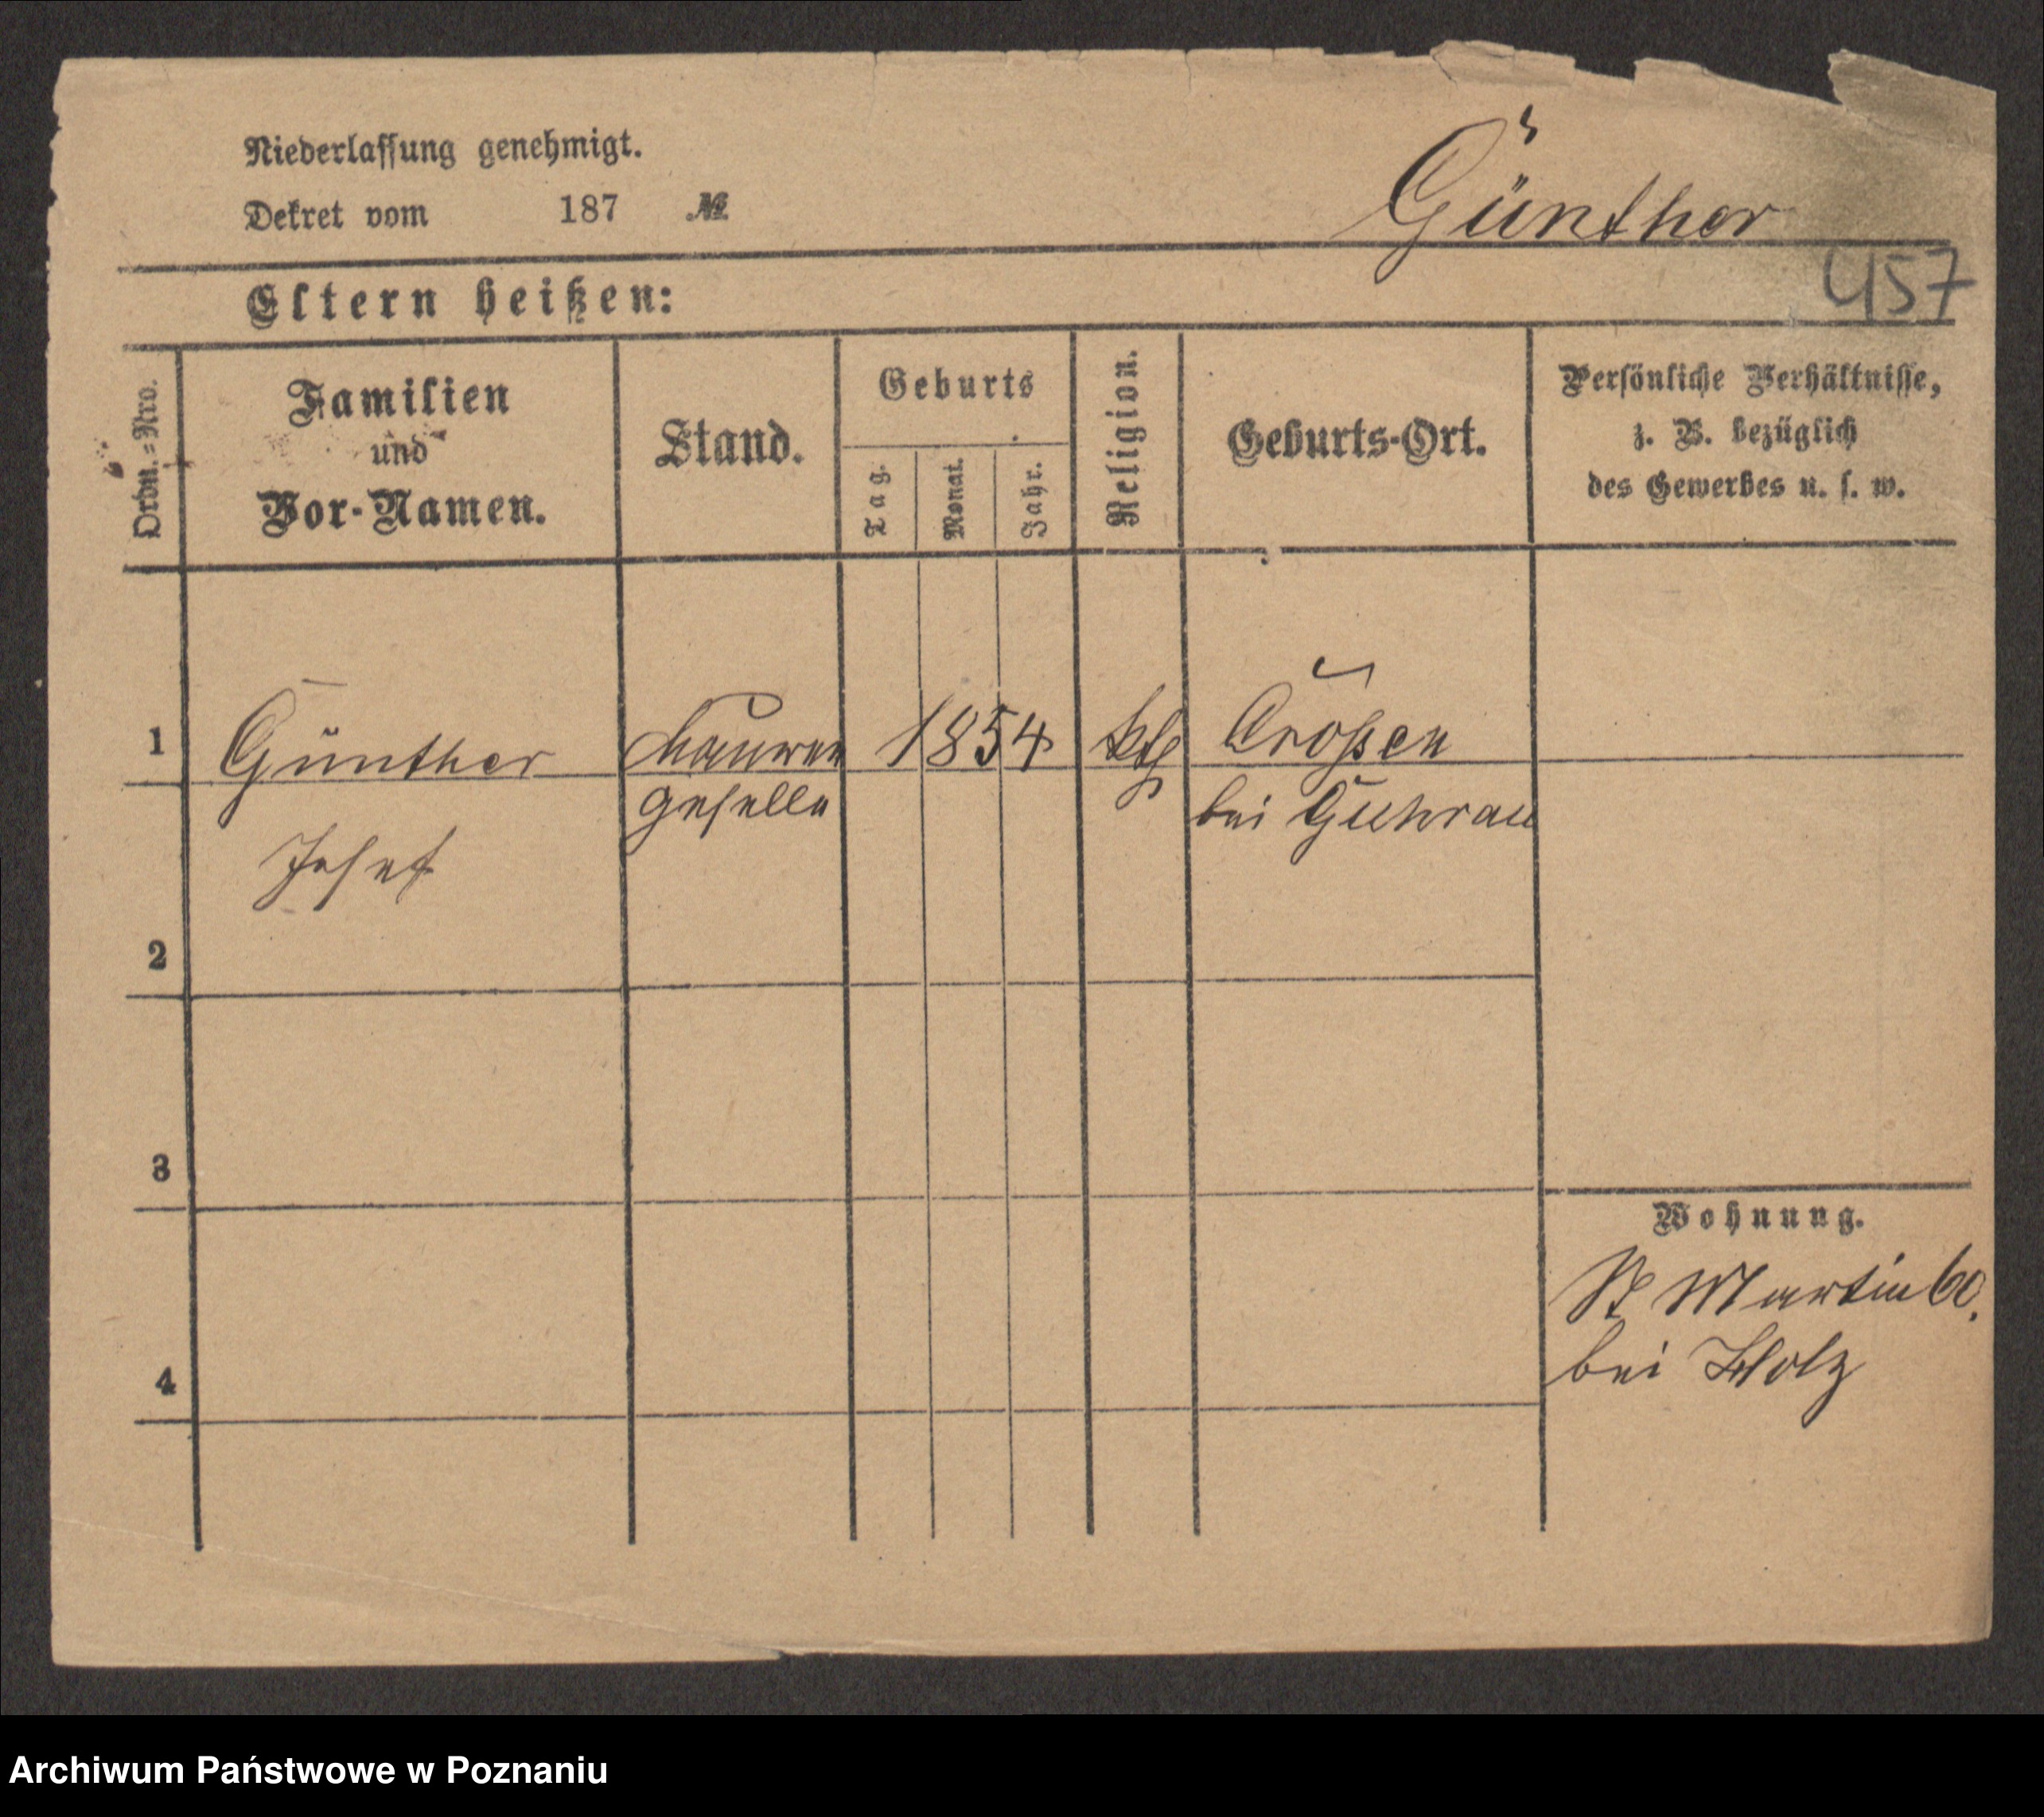 Niederlassung genehmigt.
Dekret vom 187 №
Günther
457
Eltern heißen:
Ordn.=Nro.
Familien
und
Vor-Namen.
Stand.
Geburts
Tag.
Monat.
Jahr.
Religion.
Geburts-Ort.
Persönliche Verhältnisse,
z. B. bezüglich
des Gewerbes u. s. w.
1 Günther Maurer 1854 kth
geselle bei Guhrau
Josef
2
3
Wohnung.
St Martin 60.
bei Holz
4
Archiwum Państwowe w Poznaniu